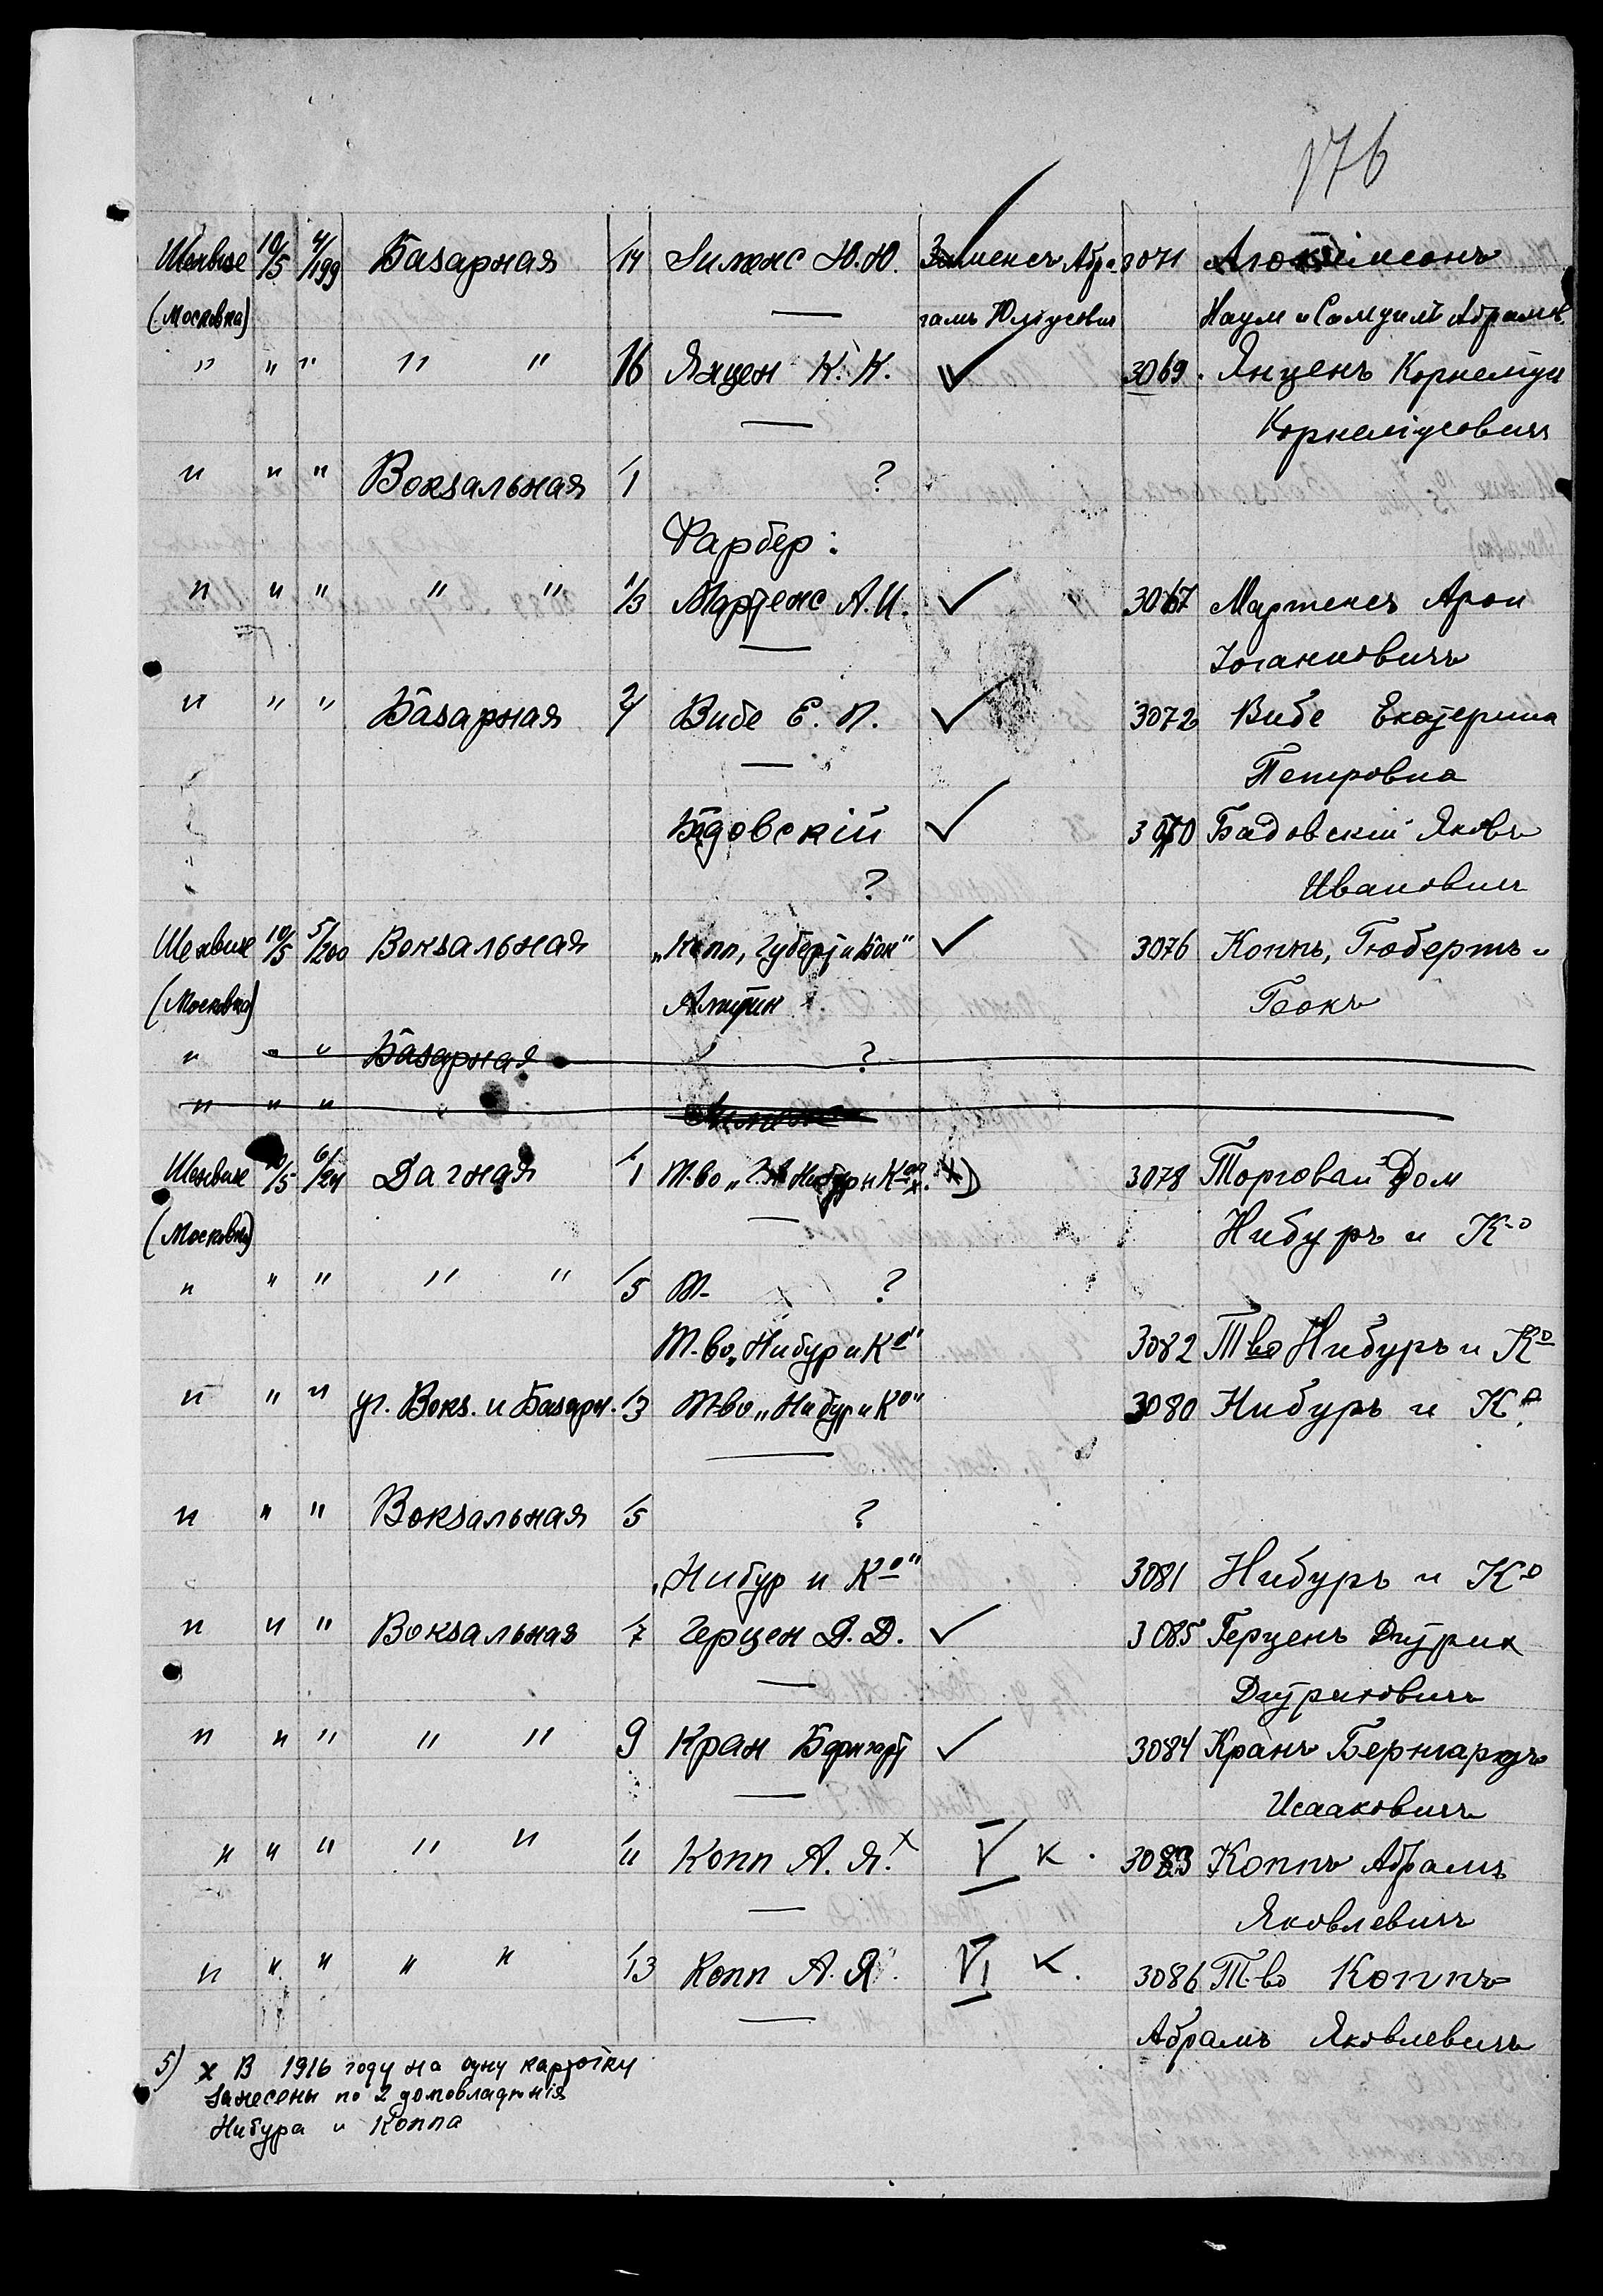 176
Шенвизе 10/5 4/199 Базарная 14 Зименс Ю.Ю. Зименсъ Абра- 3071
(Московка) — гамъ Юліусович Наум и Самуилъ Абрамов.
" " " " " 16 Янцен К. К. ✓ 3069. Янценъ Корнеліус
— Корнеліусовичъ
" " " Вокзальная 1 ?
Фарбер:
" " " " " 1/3 Мартенс А.И. ✓ 3067 Мартенсъ Арон
— Іоганновичъ
" " " Базарная 2/ Вибе Е. П. ✓ 3072 Вибе Екатерина
— Петровна
Бадовскій ✓ 3070 Бадовскій Яковъ
? Иванович
Шенвизе 10/5 5/200 Вокзальная „Копп, Губерт и Бок" ✓ 3076 Коппъ, Гюбертъ и
(Московка) Бокъ
" " " Базарная ?
" " " "
Шенвизе 10/5 6/201 Дачная 1 Т-во „ Нибур и Ко". x) 3078 Торговый Дом
(Московка) — Нибуръ и Ко
" " " " " 5 Т- ?
Т-во „Нибур и Ко" 3082 Т-во Нибуръ и Ко
" " " уг. Вокз. и Базарн. 3 Т-во „Нибур и Ко" 3080 Нибуръ и Ко
—
" " " Вокзальная 5 ?
„Нибур и Ко" 3081 Нибуръ и Ко
" " " Вокзальная 7 Герцен Д. Д. ✓ 3085 Герценъ Дитрих
— Дитрихович
" " " " " 9 Кран Бернгард ✓ 3084 Кранъ Бернгардъ
— Исаакович
" " " " " 11 Копп А. Я. x V к. 3083 Коппъ Абрамъ
— Яковлевичъ
" " " " " 13 Копп А. Я. VI к. 3086 Т-во Коппъ
— Абрамъ Яковлевичъ
5) x В 1916 году на одну карточку
занесены по 2 домовладѣнія
Нибура и Коппа